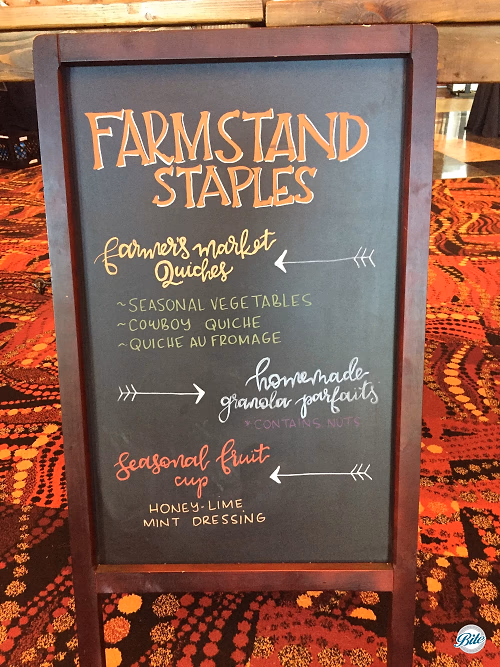 FARMSTAND
STAPLES
farmer's market
Quiches
~SEASONAL VEGETABLES
~COWBOY QUICHE
~QUICHE AU FROMAGE
homemade
granola parfaits
*CONTAINS NUTS
seasonal fruit
cup
HONEY-LIME
MINT DRESSING
Bite